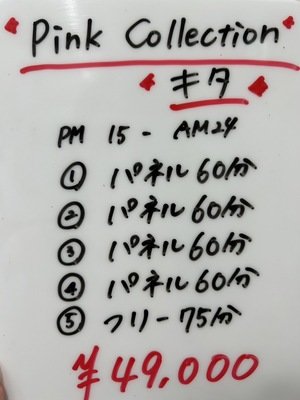 Pink Collection
キタ
PM 15 - AM24
① パネル 60分
② パネル 60分
③ パネル 60分
④ パネル 60分
⑤ フリー 75分
¥49,000